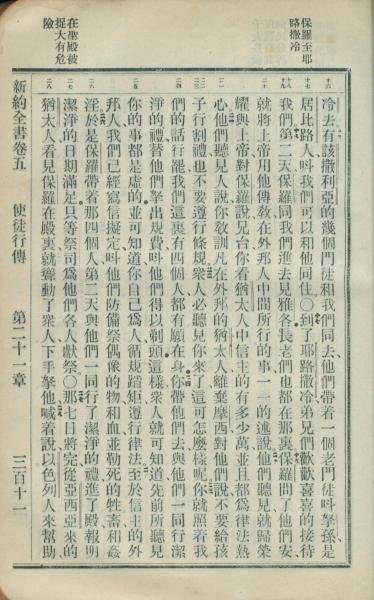 保羅至耶
路撒冷
十六
十七
十八
十九
二十
廿一
廿二
廿三
廿四
廿五
廿六
廿七
廿八
冷去有該撒利亞的幾個門徒和我們同去他們帶着一個老門徒呌拏孫是
居比路人呌我們可以和他同住〇到了耶路撒冷弟兄們歡歡喜喜的接待
我們第二天保羅同我們進去見雅各長老們也都在那裏保羅問了他們安
就將上帝用他傳敎在外邦人中間所行的事一一的述說他們聽見就歸榮
耀與上帝對保羅說兄台你看猶太人中信主的有多少萬並且都爲律法熱
心他們聽見人說你敎訓凡在外邦的猶太人離棄摩西對他們說不要給孩
子行割禮也不要遵行條規衆人必聽見你來了這可怎麽樣呢你就照着我
們的話行罷我們這裏有四個人都有願在身你帶他們去與他們一同行潔
淨的禮替他們拏出規費呌他們得以剃頭這樣衆人就可知道先前所聽見
你的事都是虛的並可知道你自己爲人循規蹈矩遵行律法至於信主的外
邦人我們已經寫信擬定呌他們防備祭偶像的物和血並勒死的牲畜和姦
淫於是保羅帶着那四個人第二天與他們一同行了潔淨的禮進了殿報明
潔淨的日期滿足只等祭司爲他們各人獻祭〇那七日將完從亞西亞來的
猶太人看見保羅在殿裏就聳動了衆人下手拏他喊着說以色列人來幫助
在聖殿被
捉大有危
險
新約全書卷五　使徒行傳　第二十一章　三百十一